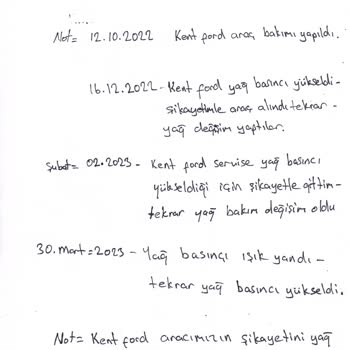 Not= 12.10.2022 Kent ford araç bakımı yapıldı.
16.12.2022 - Kent ford yağ basıncı yükseldi -
şikayetimle araç alındı tekrar -
yağ değişim yaptılar.
Şubat= 02.2023 - Kent ford servise yağ basıncı
yükseldiği için şikayetle gittim -
tekrar yağ bakım değişim oldu
30.mart=2023 - Yağ basınçı ışık yandı -
tekrar yağ basıncı yükseldi.
Not= Kent ford aracımızın şikayetini yağ